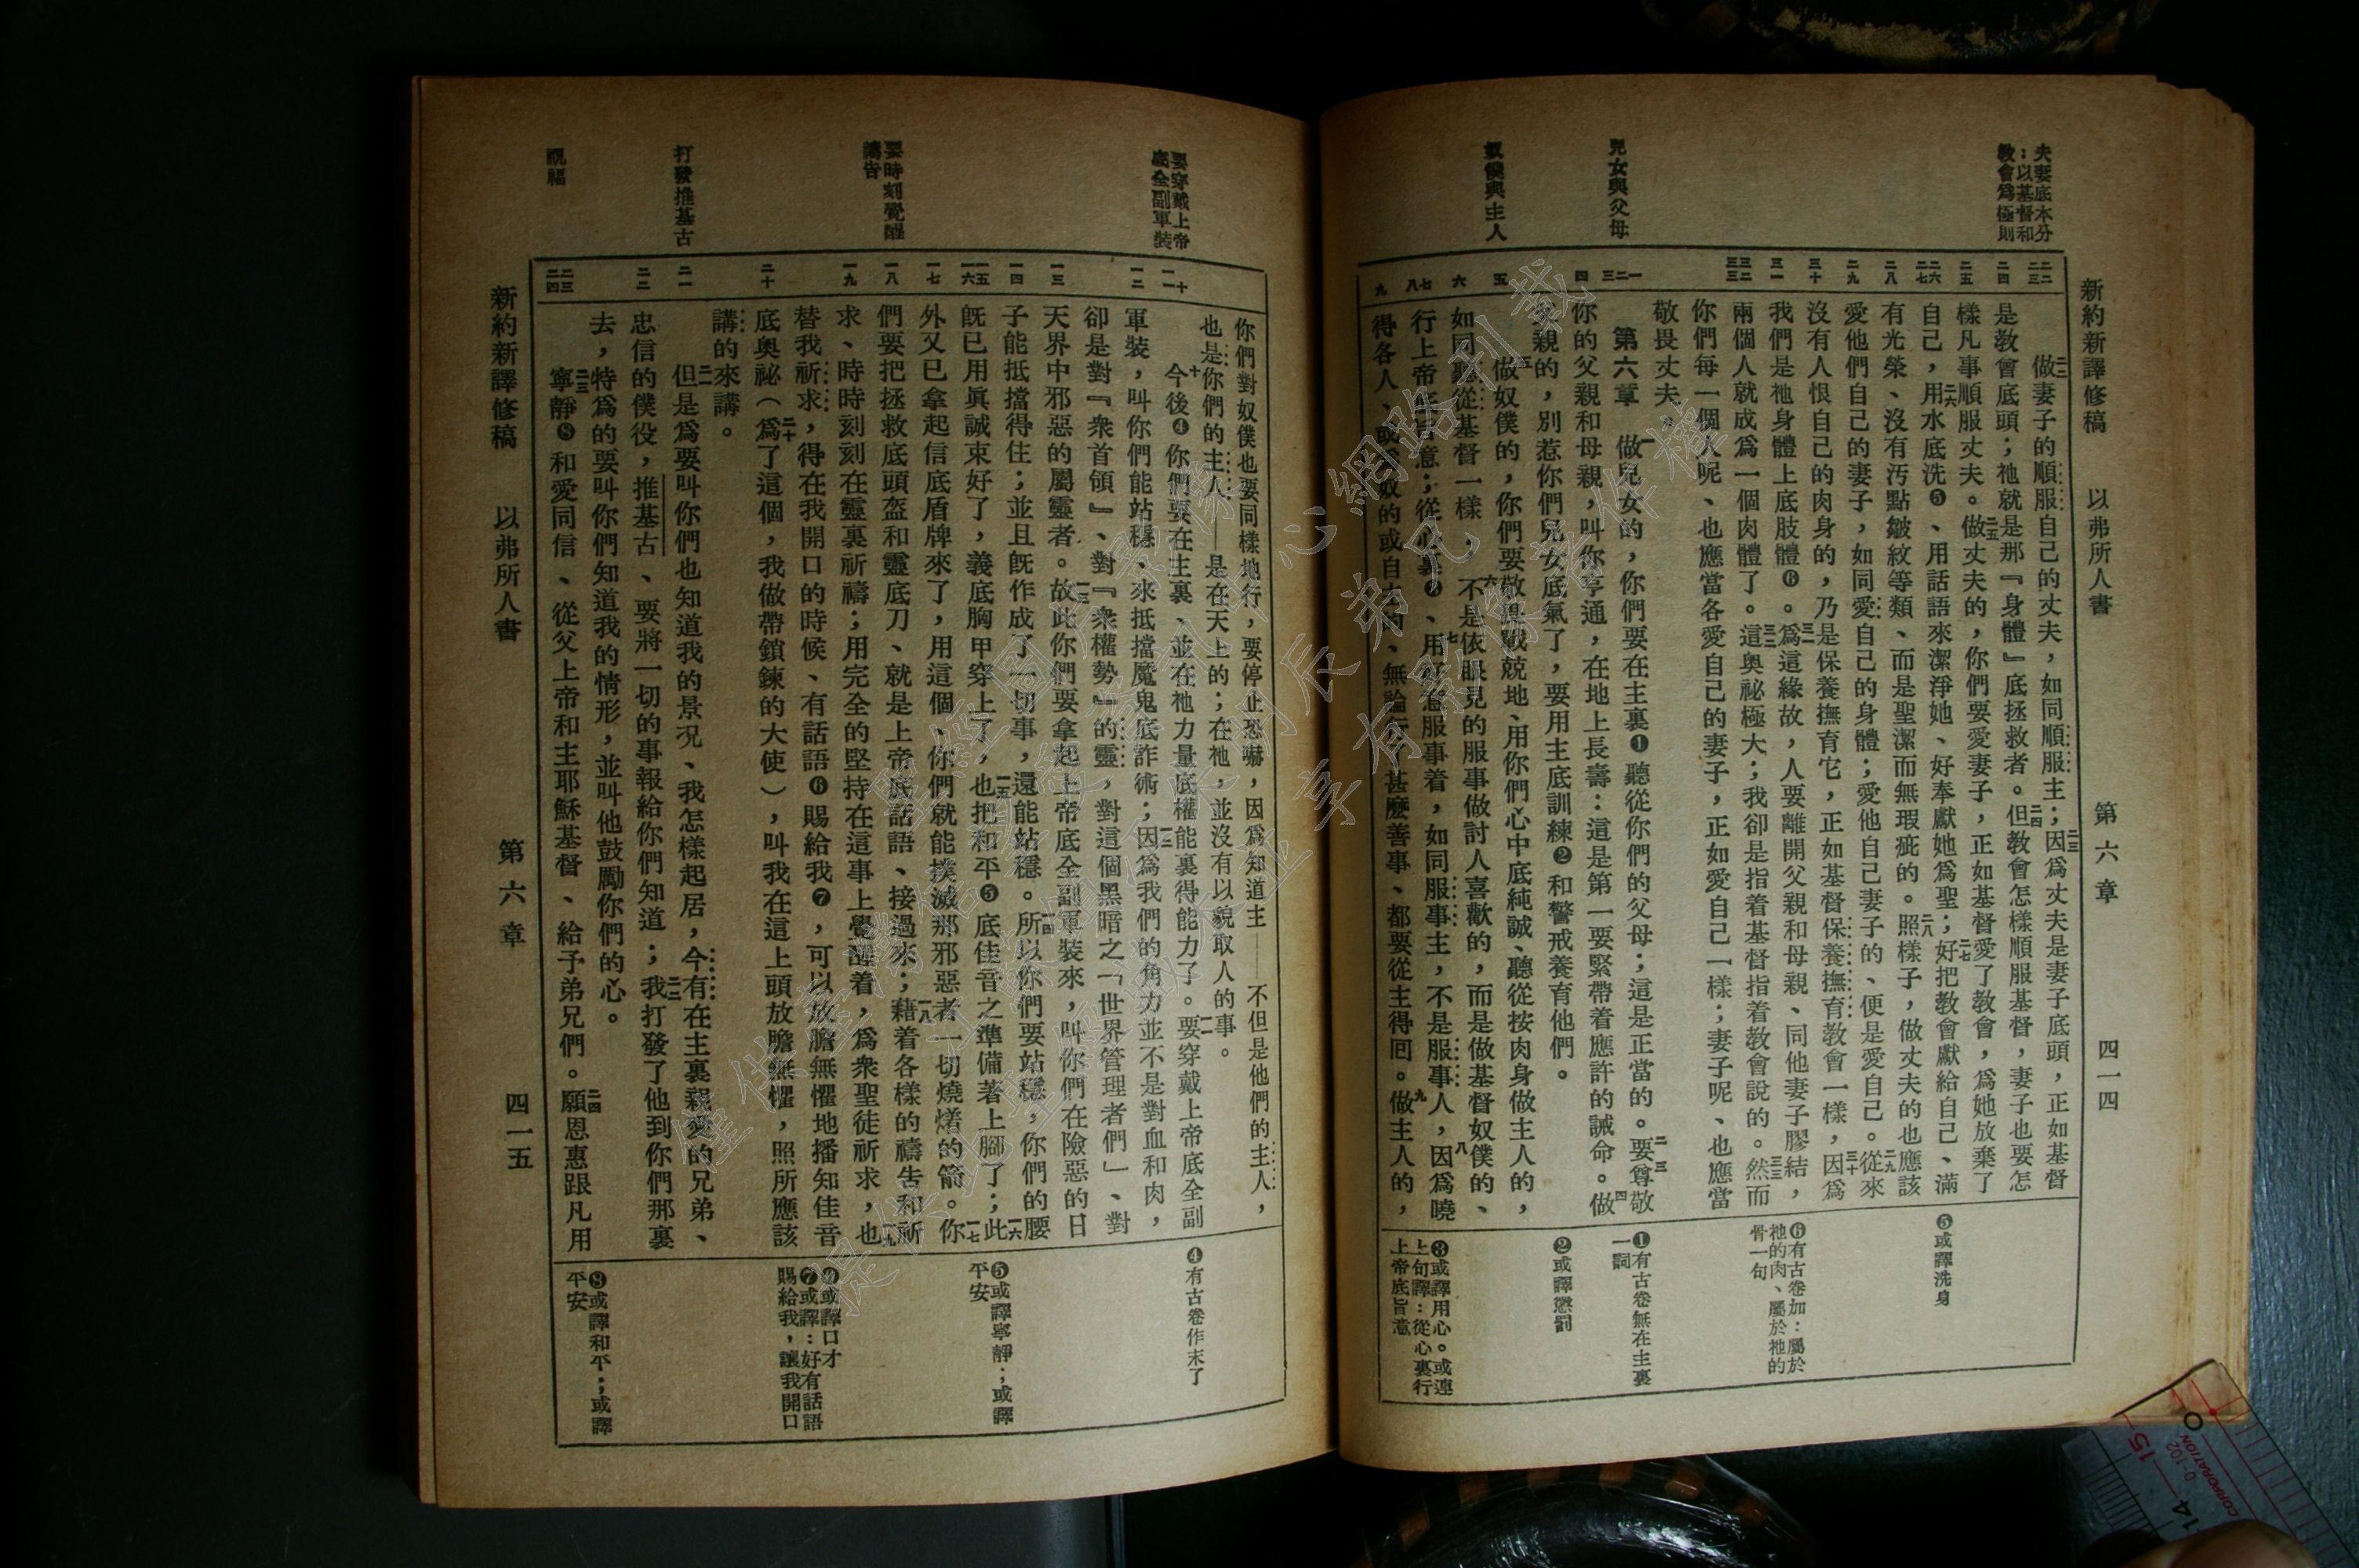 新約新譯修稿 以弗所人書 第六章 四一四
夫妻底本分
:以基督和
教會爲極則
兒女與父母
奴僕與主人
二二做妻子的順服自己的丈夫,如同順服主;二三因爲丈夫是妻子底頭,正如基督
是教會底頭;祂就是那『身體』底拯救者。二四但教會怎樣順服基督,妻子也要怎
樣凡事順服丈夫。二五做丈夫的,你們要愛妻子,正如基督愛了教會,爲她放棄了
自己,二六用水底洗❺、用話語來潔淨她、好奉獻她爲聖;二七好把教會獻給自己、滿
有光榮、沒有污點皺紋等類、而是聖潔而無瑕疵的。二八照樣子,做丈夫的也應該
愛他們自己的妻子,如同愛自己的身體;愛他自己妻子的、便是愛自己。二九從來
沒有人恨自己的肉身的,乃是保養撫育它,正如基督保養撫育教會一樣,三十因爲
我們是祂身體上底肢體❻。三一爲這緣故,人要離開父親和母親、同他妻子膠結,
兩個人就成爲一個肉體了。三二這奧祕極大;我卻是指着基督指着教會說的。三三然而
你們每一個人呢、也應當各愛自己的妻子,正如愛自己一樣;妻子呢、也應當
敬畏丈夫。
第六章 一做兒女的,你們要在主裏❶聽從你們的父母;這是正當的。二三要尊敬
你的父親和母親,叫你亨通,在地上長壽:這是第一要緊帶着應許的誡命。四做
父親的,別惹你們兒女底氣了,要用主底訓練❷和警戒養育他們。
五做奴僕的,你們要敬畏戰兢地、用你們心中底純誠、聽從按肉身做主人的,
如同聽從基督一樣,六不是依眼見的服事做討人喜歡的,而是做基督奴僕的、
行上帝底旨意;從心裏❸、七用好意服事着,如同服事主,不是服事人,八因爲曉
得各人、或爲奴的或自主的、無論行了甚麼善事、都要從主得囘。九做主人的,
❺或譯洗身
❻有古卷加:屬於
祂的肉、屬於祂的
骨一句
❶有古卷無在主裏
一詞
❷或譯懲罰
❸或譯用心。或連
上句譯:從心裏行
上帝底旨意
新約新譯修稿 以弗所人書 第六章 四一五
要穿戴上帝
底全副軍裝
要時刻覺醒
禱告
打發推基古
祝福
你們對奴僕也要同樣地行,要停止恐嚇,因爲知道主——不但是他們的主人,
也是你們的主人——是在天上的;在祂,並沒有以貌取人的事。
十今後❹你們要在主裏、並在祂力量底權能裏得能力了。一一要穿戴上帝底全副
軍裝,叫你們能站穩、來抵擋魔鬼底詐術;一二因爲我們的角力並不是對血和肉,
卻是對『衆首領』、對『衆權勢』的靈,對這個黑暗之「世界管理者們」、對
天界中邪惡的屬靈者。一三故此你們要拿起上帝底全副軍裝來,叫你們在險惡的日
子能抵擋得住;並且旣作成了一切事,還能站穩。一四所以你們要站穩,你們的腰
旣已用眞誠束好了,義底胸甲穿上了,一五也把和平❺底佳音之準備著上腳了;一六此
外又已拿起信底盾牌來了,用這個、你們就能撲滅那邪惡者一切燒㸌的箭。一七你
們要把拯救底頭盔和靈底刀、就是上帝底話語、接過來;一八藉着各樣的禱告和祈
求、時時刻刻在靈裏祈禱;用完全的堅持在這事上覺醒着,爲衆聖徒祈求,一九也
替我祈求,得在我開口的時候、有話語❻賜給我❼,可以放膽無懼地播知佳音
底奧祕(二十爲了這個,我做帶鎖鍊的大使),叫我在這上頭放膽無懼,照所應該
講的來講。
二一但是爲要叫你們也知道我的景況、我怎樣起居,今有在主裏親愛的兄弟、
忠信的僕役,推基古、要將一切的事報給你們知道;二二我打發了他到你們那裏
去,特爲的要叫你們知道我的情形,並叫他鼓勵你們的心。
二三寧靜❽和愛同信、從父上帝和主耶穌基督、給予弟兄們。二四願恩惠跟凡用
❹有古卷作末了
❺或譯寧靜;或譯
平安
❻或譯口才
❼或譯:好有話語
賜給我,讓我開口
❽或譯和平;或譯
平安